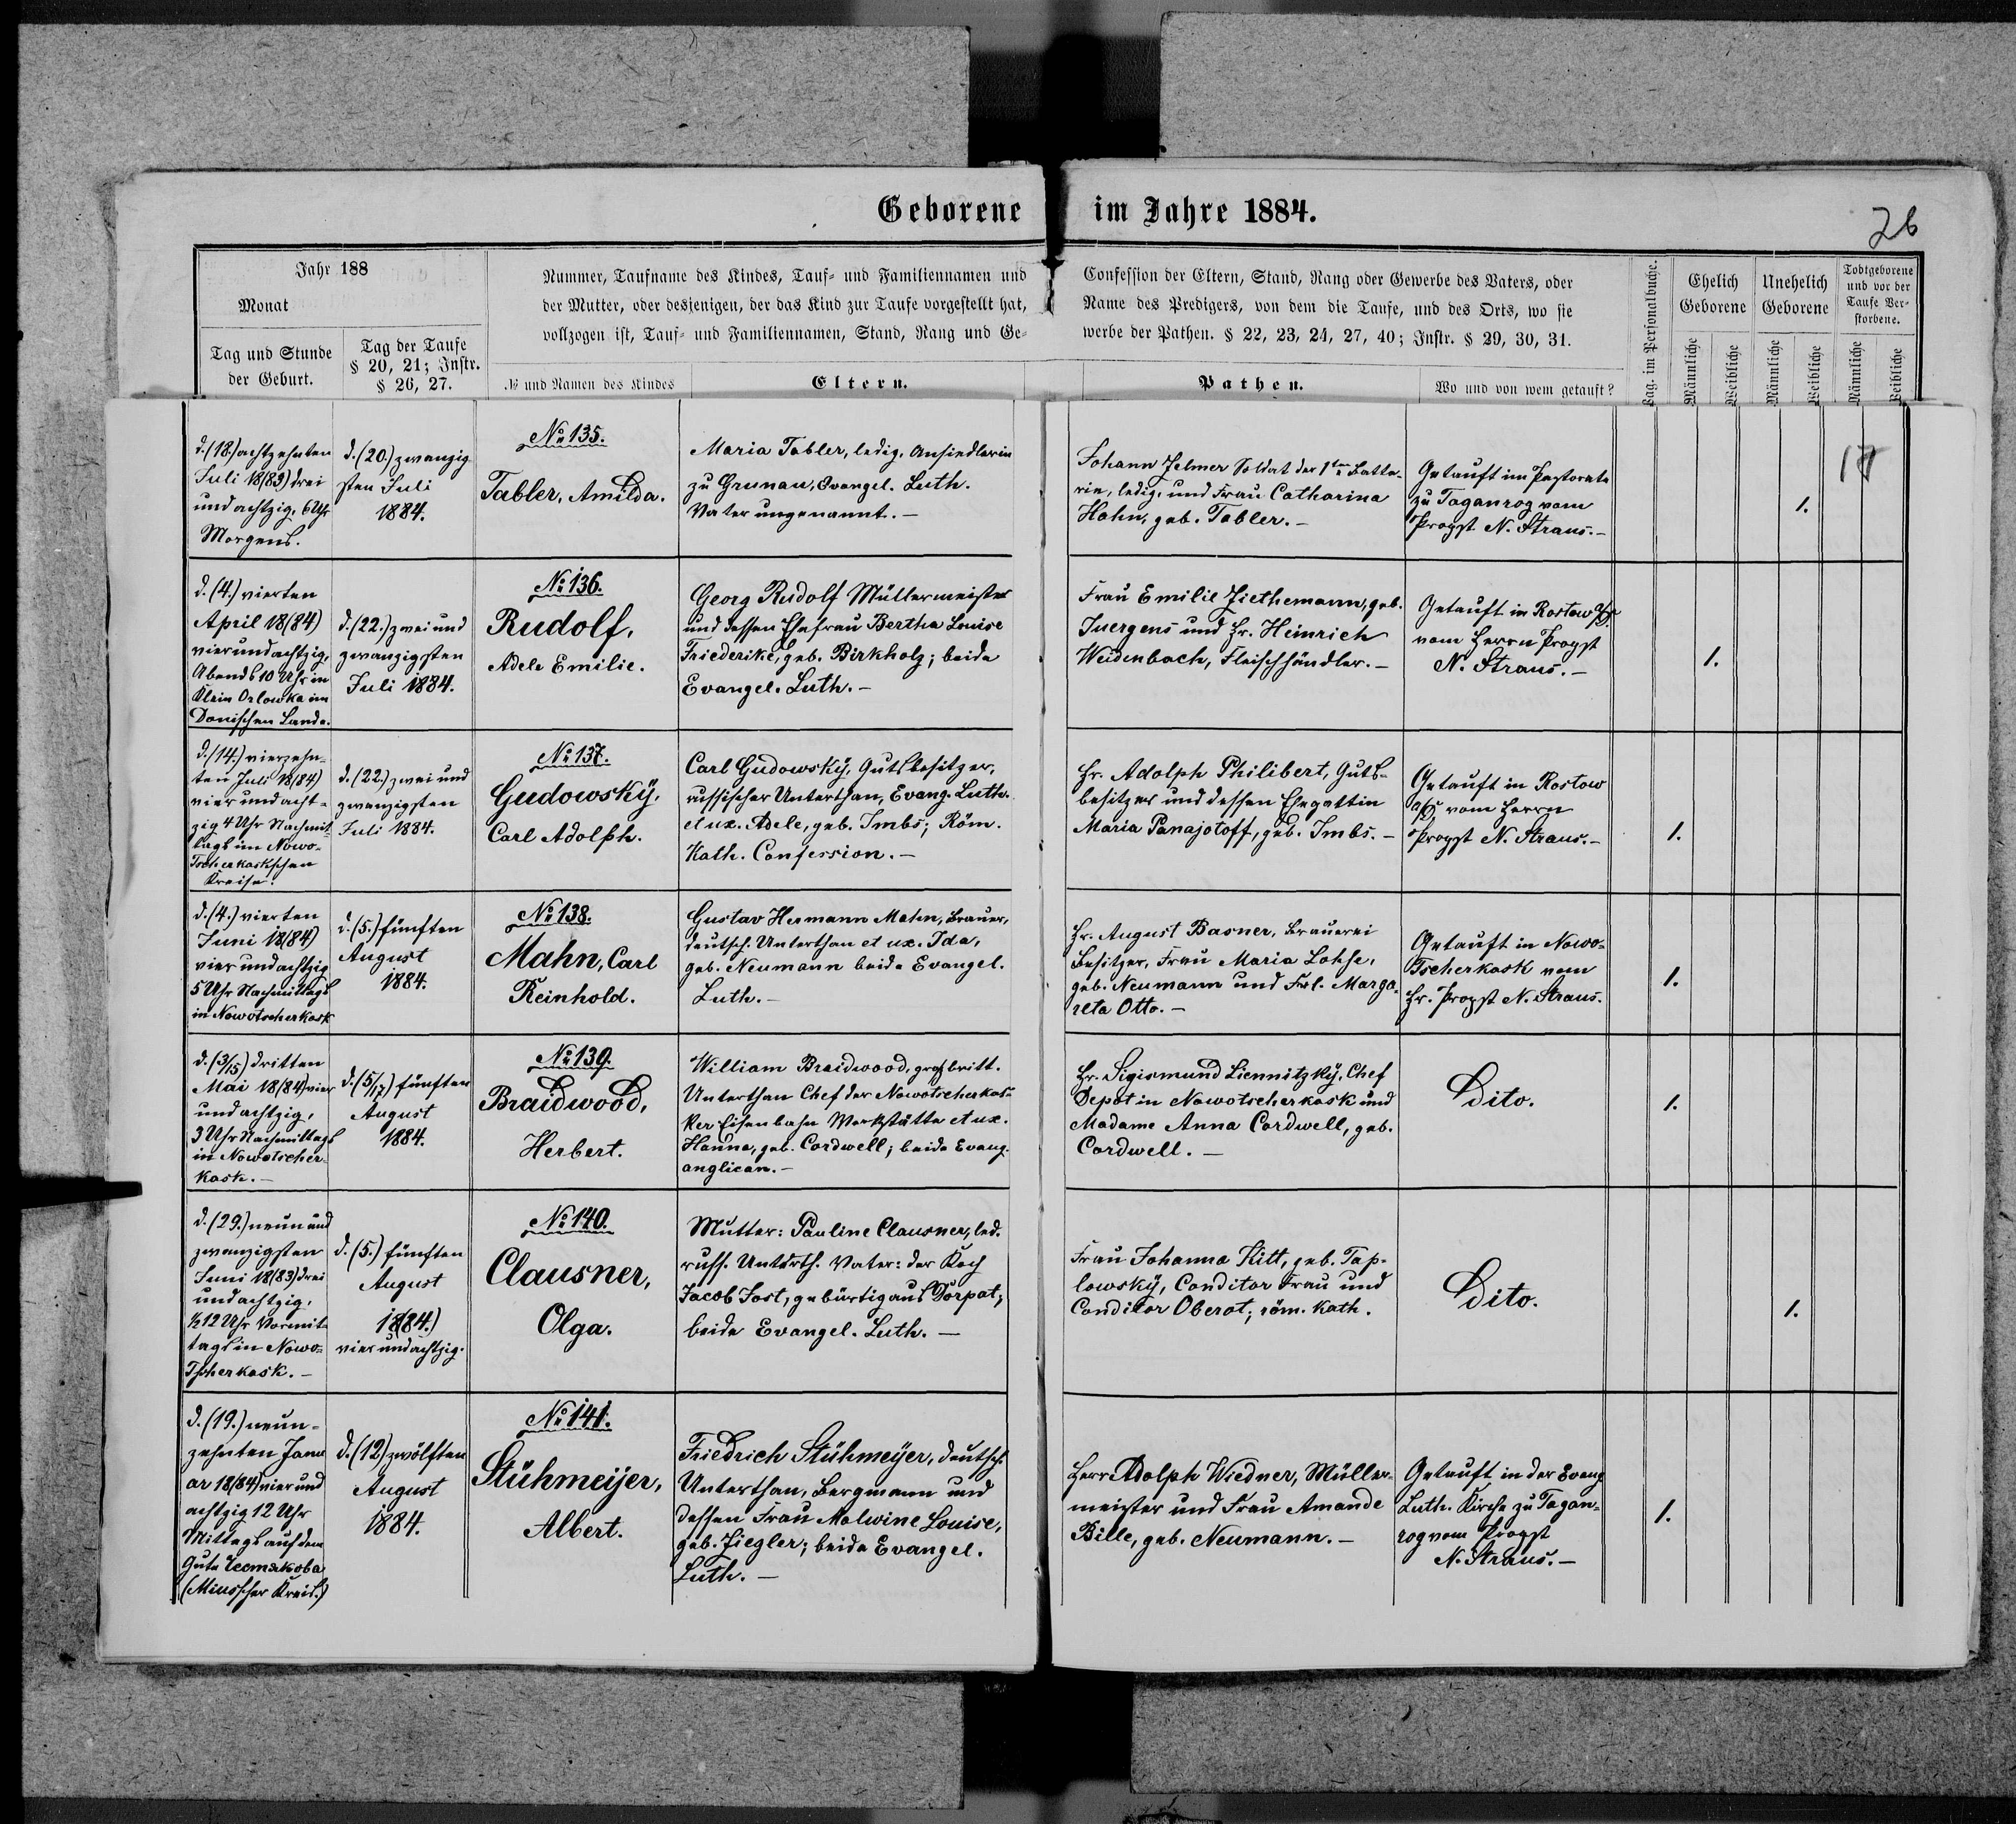 Geborene im Jahre 1884.
26
Jahr 188
Monat
Tag und Stunde
der Geburt.
Tag der Taufe
§ 20, 21; Instr.
§ 26, 27.
Nummer, Taufname des Kindes, Tauf- und Familiennamen und
der Mutter, oder desjenigen, der das Kind zur Taufe vorgestellt hat,
vollzogen ist, Tauf- und Familiennamen, Stand, Rang und Ge-
№ und Namen des Kindes
Eltern.
Confession der Eltern, Stand, Rang oder Gewerbe des Vaters, oder
Name des Predigers, von dem die Taufe, und des Orts, wo sie
werbe der Pathen. § 22, 23, 24, 27, 40; Instr. § 29, 30, 31.
Pathen.
Wo und von wem getauft?
Pag. im Personalbuche.
Ehelich
Geborene
Unehelich
Geborene
Todtgeborene
und vor der
Taufe Ver-
storbene.
Männliche
Weibliche
Männliche
Weibliche
Männliche
Weibliche
d. (18.) achtzehnten
Juli 18(83) drei
und achtzig, 6 Uhr
Morgens.
d. (20.) zwanzig
sten Juli
1884.
№ 135.
Tabler, Amilda.
Maria Tabler, ledig, Ansiedlerin
zu Grunau, Evangel. Luth.
Vater ungenannt. –
Johann Zelmer Soldat der 1ten Batte-
rie, ledig, und Frau Catharina
Hahn, geb. Tabler. –
Getauft im Pastorate
zu Taganrog vom
Propst N. Straus. –
1.
17
d. (4.) vierten
April 18(84)
vierundachtzig,
Abends 10 Uhr in
Klein Orlowka im
Donischen Lande.
d. (22.) zwei und
zwanzigsten
Juli 1884.
№ 136.
Rudolf,
Adele Emilie.
Georg Rudolf Müllermeister
und dessen Ehefrau Bertha Louise
Friederike, geb. Birkholz; beide
Evangel. Luth. –
Frau Emilie Ziethemann, geb.
Juergens und Hr. Heinrich
Weidenbach, Fleischhändler. –
Getauft in Rostow a/D.
vom Herrn Propst
N. Straus. –
1.
d. (14.) vierzehn-
ten Juli 18(84)
vier und acht-
zig 4 Uhr Nachmit-
tags im Nowo-
Tscherkaskschen
Kreise.
d. (22.) zwei und
zwanzigsten
Juli 1884.
№ 137.
Gudowsky,
Carl Adolph.
Carl Gudowsky, Gutsbesitzer,
russischer Unterthan, Evang. Luth.
et ux. Adele, geb. Imbs; Röm.
Kath. Confession. –
Hr. Adolph Philibert, Guts-
besitzer und dessen Ehegattin
Maria Panajotoff, geb. Imbs. –
Getauft in Rostow
a/D. vom Herrn
Propst N. Straus. –
1.
d. (4.) vierten
Juni 18(84)
vier und achtzig
5 Uhr Nachmittags
in Nowotscherkask
d. (5.) fünften
August
1884.
№ 138.
Mahn, Carl
Reinhold.
Gustav Hermann Mahn, Brauer,
deutsch. Unterthan et ux. Ida,
geb. Neumann beide Evangel.
Luth. –
Hr. August Basner, Brauerei
Besitzer, Frau Maria Lohse,
geb. Neumann und Frl. Marga-
reta Otto. –
Getauft in Nowo-
Tscherkask vom
Hr. Propst N. Straus.
1.
d. (3/15) dritten
Mai 18(84) vier
und achtzig,
3 Uhr Nachmittags
in Nowotscher-
kask. –
d. (5/17) fünften
August
1884.
№ 139.
Braidwood,
Herbert.
William Braidwood, großbritt.
Unterthan Chef der Nowotscherkas-
ker Eisenbahn Werkstätte et ux.
Hanna, geb. Cordwell; beide Evang.
anglican. –
Hr. Sigismund Liennitzky, Chef
Depot in Nowotscherkask und
Madame Anna Cordwell, geb.
Cordwell. –
Dito.
1.
d. (29.) neun und
zwanzigsten
Juni 18(83) drei
und achtzig,
½12 Uhr Vormit-
tags in Nowo-
Tscherkask. –
d. (5.) fünften
August
18(84.)
vier und achtzig.
№ 140.
Clausner,
Olga.
Mutter: Pauline Clausner, led.
russ. Unterth. Vater: der Koch
Jacob Jost, gebürtig aus Dorpat;
beide Evangel. Luth. –
Frau Johanna Kitt, geb. Tap-
lowsky, Conditor Frau und
Conditor Oberat; röm. Kath.
Dito.
1.
d. (19.) neun-
zehnten Janu
ar 18(84) vier und
achtzig 12 Uhr
Mittags auf dem
Gute Честкова
(Miusscher Kreis.)
d. (12) zwölften
August
1884.
№ 141.
Stühmeijer,
Albert.
Friedrich Stühmeyer, deutsch.
Unterthan, Bergmann und
dessen Frau Malwine Louise,
geb. Ziegler; beide Evangel.
Luth. –
Herr Adolph Wiedner, Müller-
meister und Frau Amande
Bille, geb. Neumann. –
Getauft in der Evang
Luth. Kirche zu Tagan-
rog vom Propst
N. Straus. –
1.